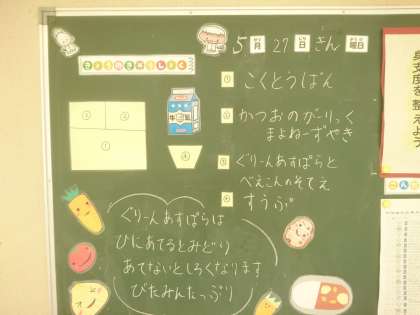 5月27日きん曜日
きょうのきゅうしょく
① こくとうぱん
② かつおのがーりっく
まよねーずやき
③ ぐりーんあすぱらと
べえこんのそてえ
④ すうぷ
② ③
①
④
牛乳
ぐりーんあすぱらは
ひにあてるとみどり
あてないとしろくなります
びたみんたっぷり
身支度を整えよう